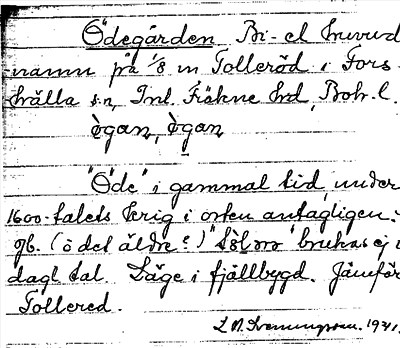 Ödegården Bi- el huvud
namn på 1/8 m Tolleröd i Fors-
hälla sn, Inl. Fräkne hd, Boh. l.
ògan, ògan
"Öde" i gammal tid, under
1600-talets krig i orten antagligen.
gb. (ö det äldre?) bruhas ej i
dagl. tal. Läge i fjällbygd. Jämför
Tollered.
1941.